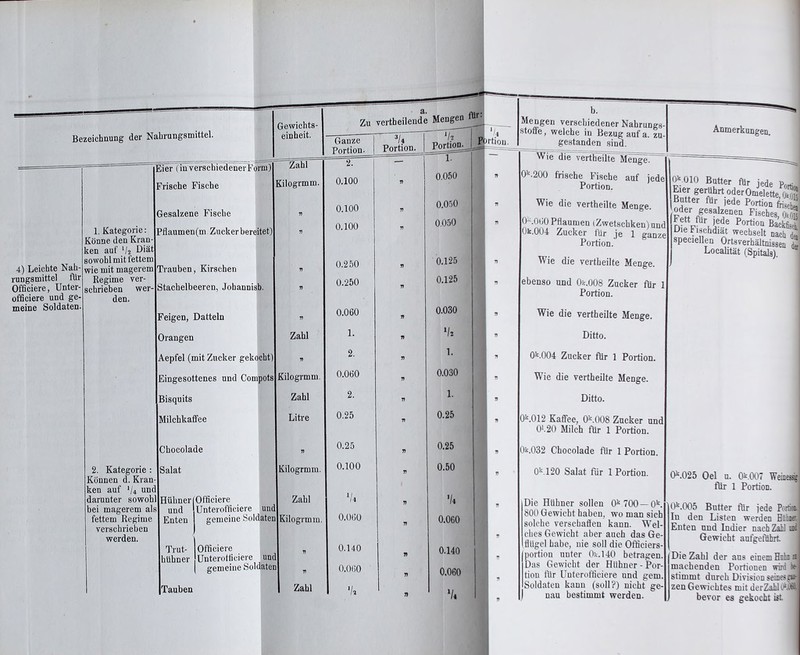 Bezeichnung der Nahrungsmittel.
Gewichts-
einheit.
a.
Zu vertheilende Mengen für:
Ganze
Portion.
3/4
Portion.
1/2
Portion.
1/4
Portion.
b.
Mengen verschiedener Nahrungs-
stoffe, welche in Bezug auf a. zu-
gestanden sind.
Anmerkungen.
4) Leichte Nah-
rungsmittel für
Officiere, Unter-
officiere und ge-
meine Soldaten.
1. Kategorie:
Könne den Kran-
ken auf 1/2 Diät
sowohl mit fettem
wie mit magerem
Regime ver-
schrieben wer-
den.
Eier (in verschiedener Form) Zahl 2. — 1. — Wie die vertheilte Menge.
Frische Fische Kilogrmm. 0.100 „ 0.050 „ 0k.200 frische Fische auf jede
Portion.
Gesalzene Fische „ 0.100 „ 0.050 „ Wie die vertheilte Menge.
Pflaumen (m Zucker bereitet) „ 0.100 „ 0.050 „ 0k.060 Pflaumen (Zwetschken) und
0k.004 Zucker für je 1 ganze
Portion.
Trauben, Kirschen „ 0.250 „ 0.125 „ Wie die vertheilte Menge.
Stachelbeeren, Johannisb. „ 0.250 „ 0.125 „ ebenso und 0k.008 Zucker für 1
Portion.
Feigen, Datteln „ 0.060 „ 0.030 „ Wie die vertheilte Menge.
Orangen Zahl 1. „ 1/2 „ Ditto.
Aepfel (mit Zucker gekocht) „ 2. „ 1. „ 0k.004 Zucker für 1 Portion.
Eingesottenes und Compots Kilogrmm. 0.060 „ 0.030 „ Wie die vertheilte Menge.
Bisquits Zahl 2. „ 1. „ Ditto.
Milchkaffee Litre 0.25 „ 0.25 „ 0k.012 Kaffee, 0k.008 Zucker und
0l.20 Milch für 1 Portion.
Chocolade „ 0.25 „ 0.25 „ 0k.032 Chocolade für 1 Portion.
0k.010 Butter für jede Portion
Eier gerührt oder Omelette, 0k.015
Butter für jede Portion frischen
oder gesalzenen Fisches, 0k.015
Fett für jede Portion Backfisch.
Die Fischdiät wechselt nach den
speciellen Ortsverhältnissen der
Localität (Spitals).
2. Kategorie:
Können d. Kran-
ken auf 1/4 und
darunter sowohl
bei magerem als
fettem Regime
verschrieben
werden.
Salat Kilogrmm. 0.100 „ 0.50 „ 0k.120 Salat für 1 Portion.
Hühner
und
Enten
Officiere Zahl 1/4 „ 1/4 „
Unterofficiere und
gemeine Soldaten Kilogrmm. 0.060 „ 0.060 „
Trut-
hühner
Officiere „ 0.140 „ 0.140 „
Unterofficiere und
gemeine Soldaten „ 0.060 „ 0.060 „
Tauben Zahl 1/2 „ 1/4 „
Die Hühner sollen 0k 700—0k.
800 Gewicht haben, wo man sich
solche verschaffen kann. Wel-
ches Gewicht aber auch das Ge-
flügel habe, nie soll die Officiers-
portion unter 0k.140 betragen.
Das Gewicht der Hühner-Por-
tion für Unterofficiere und gem.
Soldaten kann (soll?) nicht ge-
nau bestimmt werden.
0k.025 Oel u. 0k.007 Weinessig
für 1 Portion.
0k.005 Butter für jede Portion.
In den Listen werden Hühner,
Enten und Indier nach Zahl und
Gewicht aufgeführt.
Die Zahl der aus einem Huhn zu
machenden Portionen wird be-
stimmt durch Division seines gan-
zen Gewichtes mit der Zahl 0k.060,
bevor es gekocht ist.